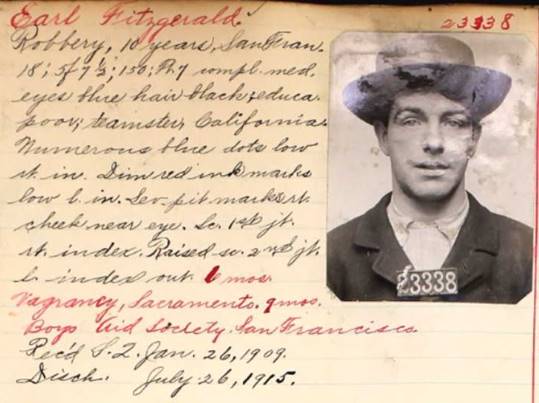 Earl Fitzgerald
23338
Robbery, 10 years, San Fran.
18; 5f 7½; 150; compl. med.
eyes blue hair black; educa.
poor; teamster; California.
Numerous blue dots low
rt. in. Dim red ink marks
low l. in. Sev. pit marks rt.
cheek near eye. Sc. 1st jt.
rt. index. Raised sc. 2nd jt.
l. index out. 6 mos.
Vagrancy, Sacramento. 9 mos.
Boys Aid Society. San Francisco
Rec'd S.Q. Jan. 26, 1909.
Disch. July 26, 1915.
23338